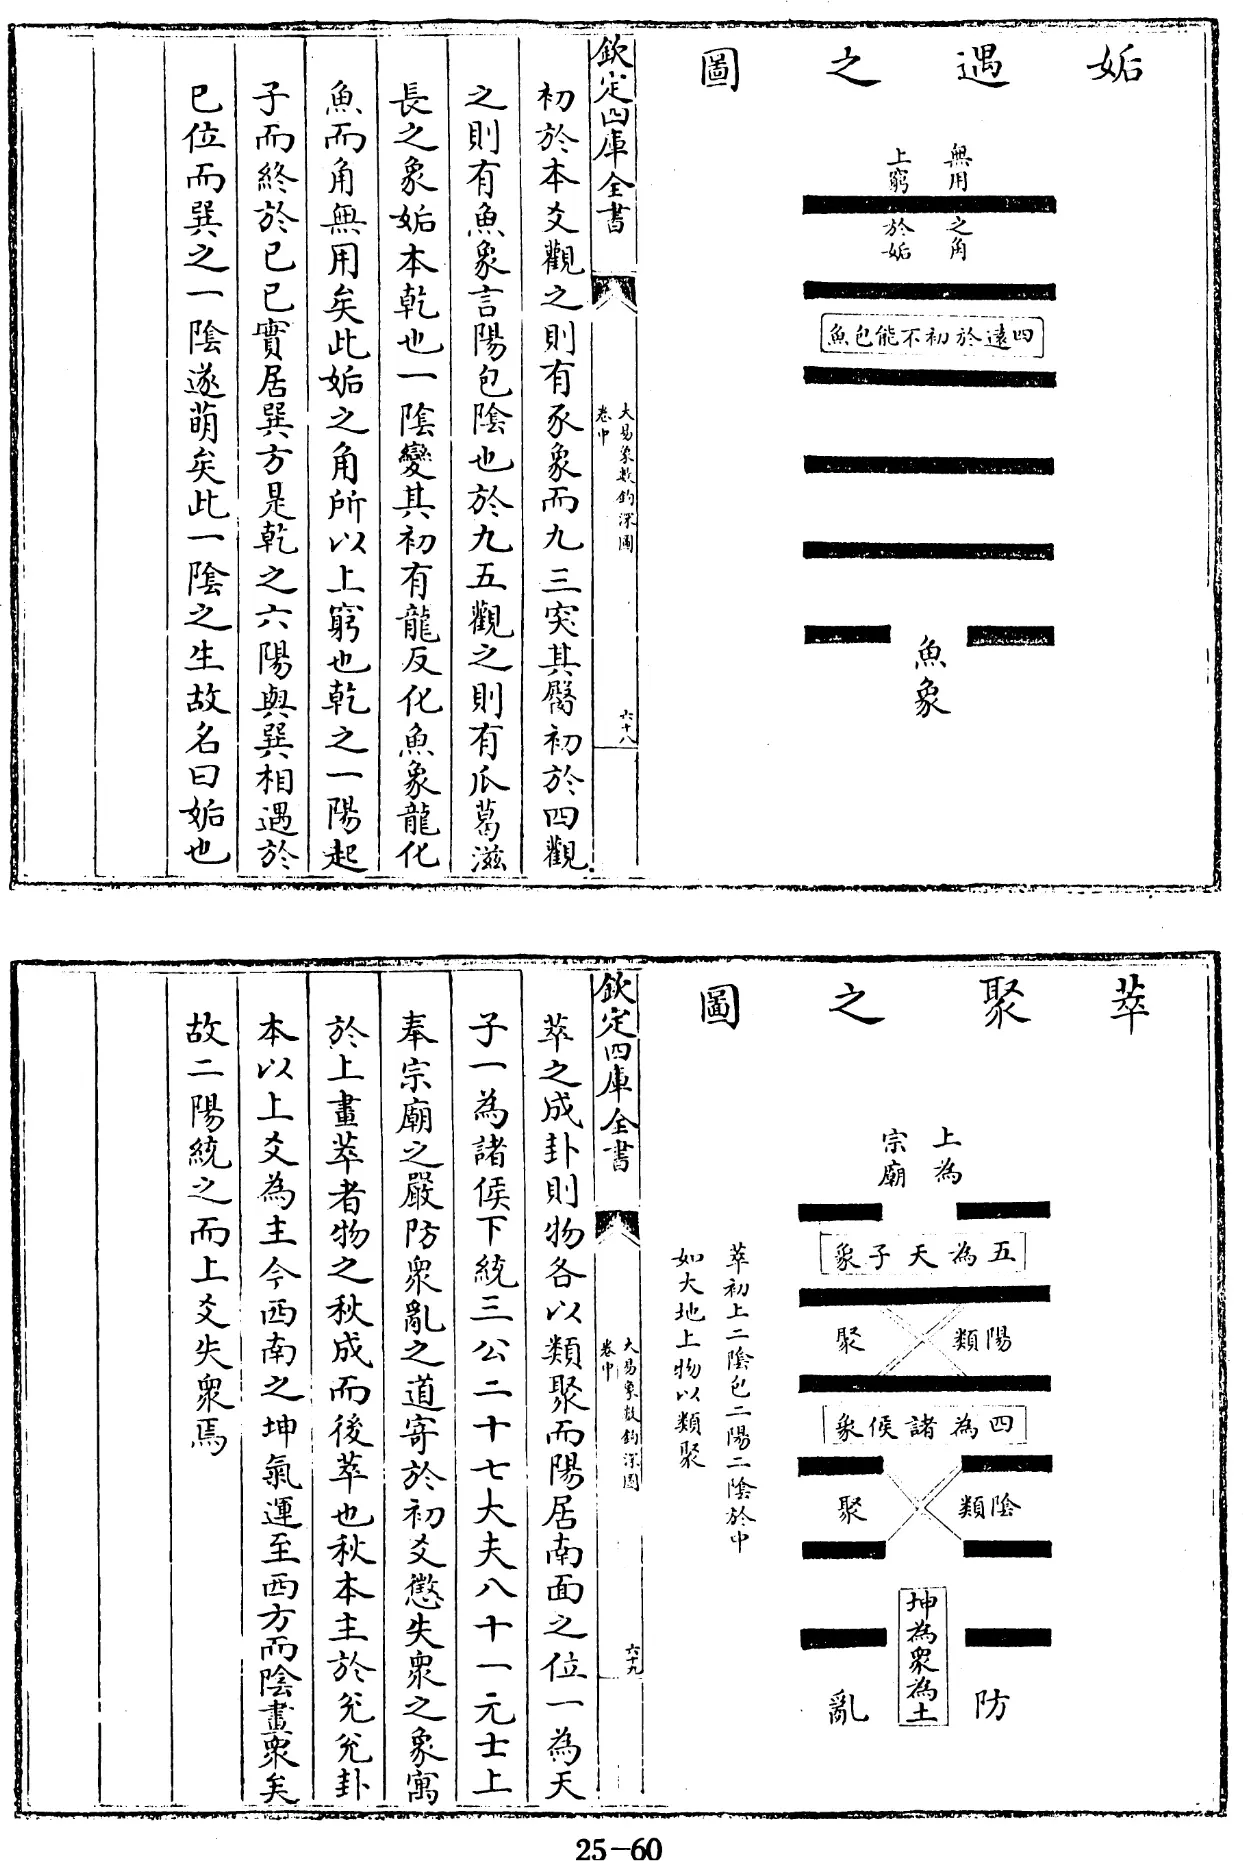 姤遇之圖
無用之角
上窮於姤
四遠於初不能包魚
魚象
欽定四庫全書
大易象數鈎深圖
卷中
六十八
初於本爻觀之則有豕象而九三突其臀初於四觀
之則有魚象言陽包陰也於九五觀之則有瓜葛滋
長之象姤本乾也一陰變其初有龍反化魚象龍化
魚而角無用矣此姤之角所以上窮也乾之一陽起
子而終於巳巳實居巽方是乾之六陽與巽相遇於
巳位而巽之一陰遂萌矣此一陰之生故名曰姤也
萃聚之圖
上為
宗廟
五為天子象
陽類聚
四為諸侯象
陰類聚
坤為衆為土
防亂
萃初上二陰包二陽二陰於中
如大地上物以類聚
欽定四庫全書
大易象數鈎深圖
卷中
六十九
萃之成卦則物各以類聚而陽居南面之位一為天
子一為諸侯下統三公二十七大夫八十一元士上
奉宗廟之嚴防衆亂之道寄於初爻懲失衆之象寓
於上畫萃者物之秋成而後萃也秋本主於兊兊卦
本以上爻為主今西南之坤氣運至西方而陰畫衆矣
故二陽統之而上爻失衆焉
25-60